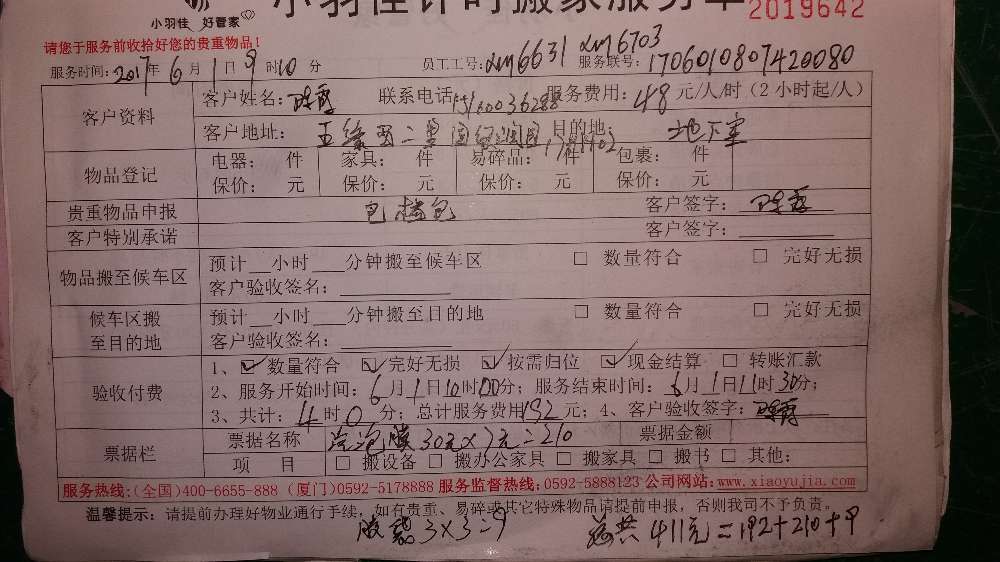 小羽佳计时搬家服务单
小羽佳 好管家 2019642
请您于服务前收拾好您的贵重物品!
服务时间: 2017年6月1日9时10分 员工工号: xm6631 xm6703 服务联号: 1706010807420080
客户资料 客户姓名: 联系电话: 服务费用: 48元/人/时 (2小时起/人)
客户地址: 五缘 二里 目的地: 地下室
物品登记 电器: 件 家具: 件 易碎品: 件 包裹: 件
保价: 元 保价: 元 保价: 元 保价: 元
贵重物品申报 包 包 客户签字:
客户特别承诺 客户签字:
物品搬至候车区 预计__小时___分钟搬至候车区 □ 数量符合 □ 完好无损
客户验收签名:
候车区搬至目的地 预计__小时___分钟搬至目的地 □ 数量符合 □ 完好无损
客户验收签名:
验收付费 1、☑数量符合 ☑完好无损 ☑按需归位 ☑现金结算 □ 转账汇款
2、服务开始时间: 6月1日10时00分; 服务结束时间: 6月1日11时30分;
3、共计: 4时0分; 总计服务费用192元; 4、客户验收签字:
票据栏 票据名称 气泡膜30元×7元=210 票据金额
项 目 □ 搬设备 □ 搬办公家具 □ 搬家具 □ 搬书 □ 其他:
服务热线:(全国)400-6655-888 (厦门)0592-5178888 服务监督热线:0592-5888123 公司网站:www.xiaoyujia.com
温馨提示: 请提前办理好物业通行手续, 如有贵重、易碎或其它特殊物品请提前申报, 否则我司不予负责。
胶袋3×3=9 总共411元=192+210+9